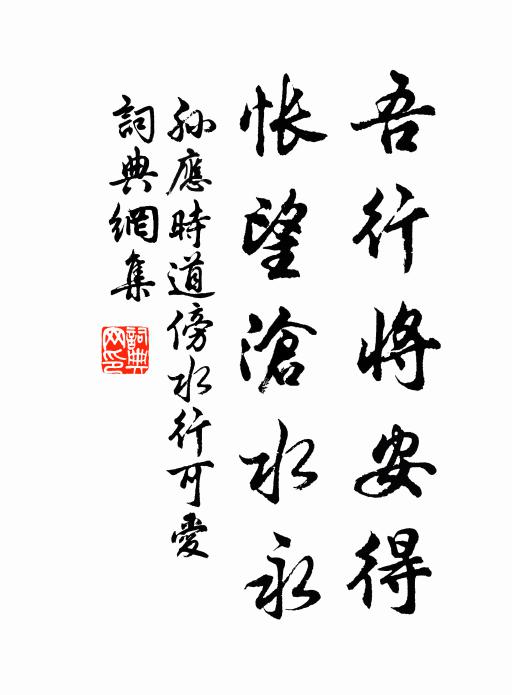 吾行将安得
怅望滄水永
孫應時道傍水行可愛
詞典網集
詞典网印